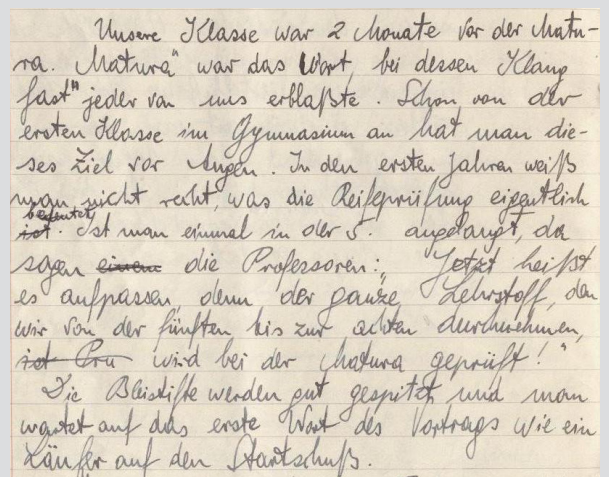 Unsere Klasse war 2 Monate vor der Matu-
ra. „Matura" war das Wort, bei dessen Klang
fast jeder von uns erblaßte. Schon von der
ersten Klasse im Gymnasium an hat man die-
ses Ziel vor Augen. In den ersten Jahren weiß
man nicht recht, was die Reifeprüfung eigentlich
bedeutet
ist. Ist man einmal in der 5. angelangt, da
sagen einem die Professoren: „Jetzt heißt
es aufpassen, denn der ganze Lehrstoff, den
wir von der fünften bis zur achten durchnehmen,
ist Prü wird bei der Matura geprüft!"
Die Bleistifte werden gut gespitzt, und man
wartet auf das erste Wort des Vortrags wie ein
Läufer auf den Startschuß.